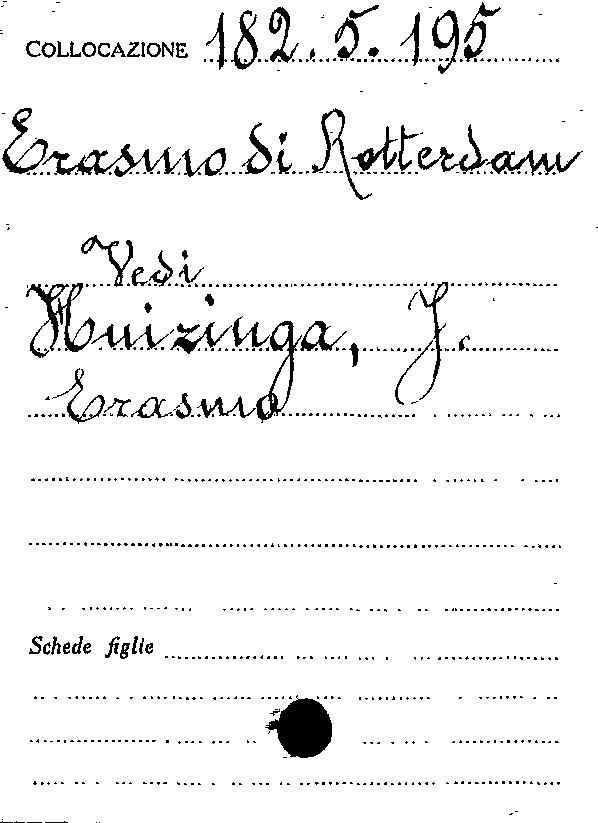 COLLOCAZIONE 182.5.195
Erasmo di Rotterdam
Vedi
Huizinga, J.
Erasmo
Schede figlie